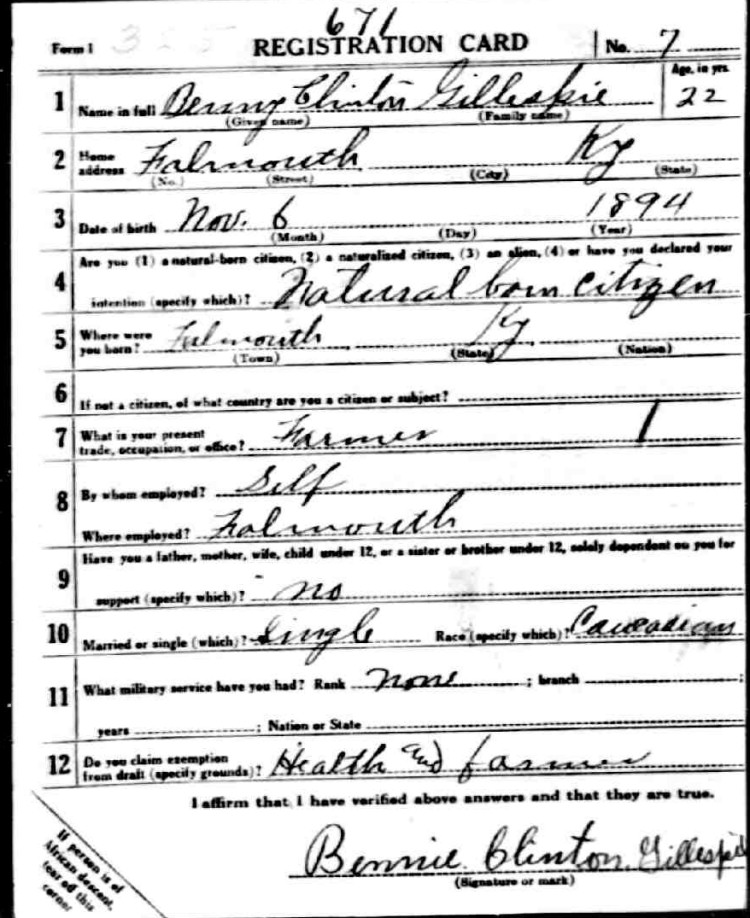 671
Form 1 325 REGISTRATION CARD No. 7
1 Name in full Benny Clinton Gillespie Age, in yrs. 22
(Given name) (Family name)
2 Home address Falmouth Ky
(No.) (Street) (City) (State)
3 Date of birth Nov. 6 1894
(Month) (Day) (Year)
Are you (1) a natural-born citizen, (2) a naturalized citizen, (3) an alien, (4) or have you declared your
4 intention (specify which)? Natural born citizen
5 Where were you born? Falmouth Ky
(Town) (State) (Nation)
6 If not a citizen, of what country are you a citizen or subject?
7 What is your present trade, occupation, or office? Farmer 1
8 By whom employed? Self
Where employed? Falmouth
Have you a father, mother, wife, child under 12, or a sister or brother under 12, solely dependent on you for
9 support (specify which)? no
10 Married or single (which)? Single Race (specify which)? Caucasian
11 What military service have you had? Rank none ; branch ;
years ; Nation or State
12 Do you claim exemption from draft (specify grounds)? Health and farmer
I affirm that I have verified above answers and that they are true.
Bennie Clinton Gillespie
(Signature or mark)
If person is of
African descent,
tear off this
corner